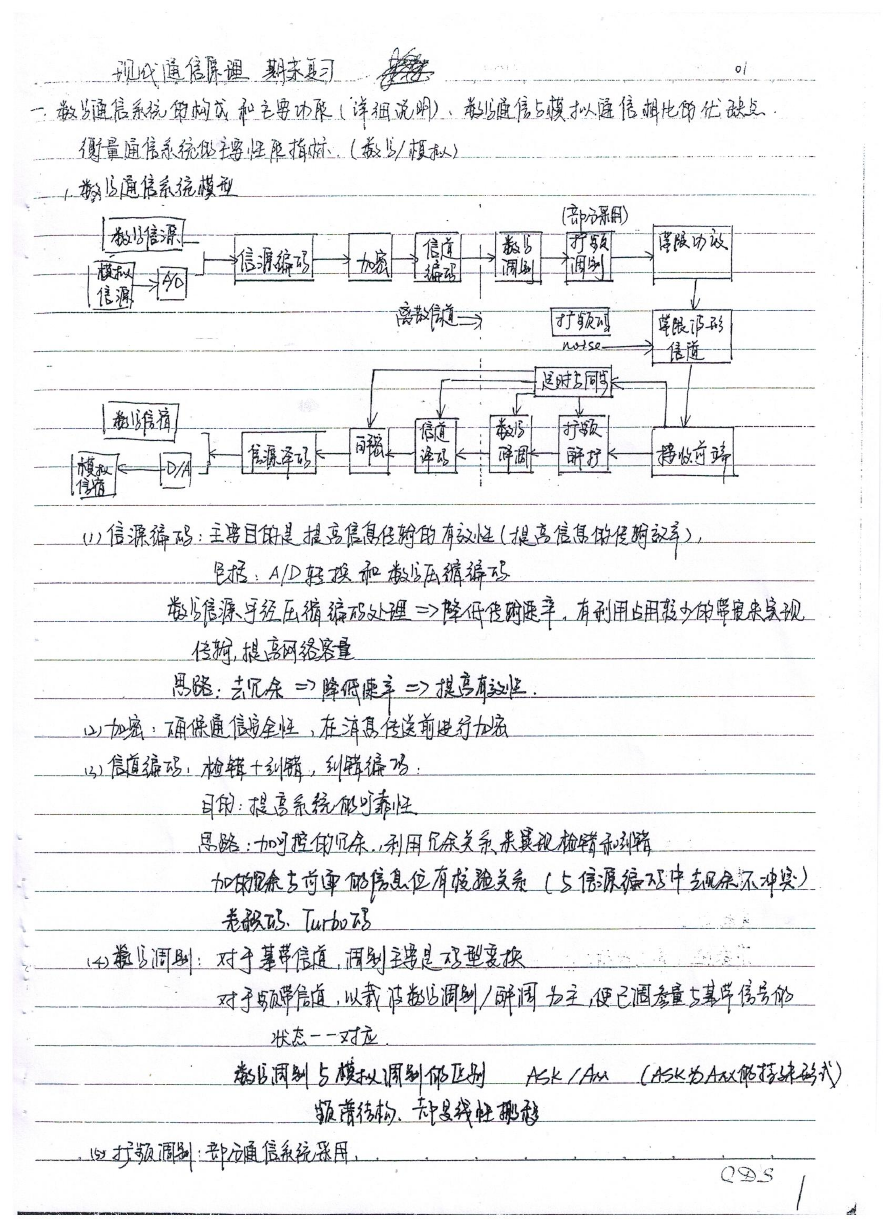 现代通信原理 期末复习
01
一. 数字通信系统的构成和主要功能(详细说明)、数字通信与模拟通信相比的优缺点.
衡量通信系统的主要性能指标. (数字/模拟)
1. 数字通信系统模型
(部分采用)
数字信源 信源编码 加密 信道编码 数字调制 扩频调制 带限功放
模拟信源 A/D
离散信道 ⇒ 扩频码 带限波形信道
noise
定时与同步
数字信宿 信源译码 解密 信道译码 数字解调 扩频解扩 接收前端
模拟信宿 D/A
(1) 信源编码: 主要目的是提高信息传输的有效性(提高信息的传输效率),
包括: A/D转换和数字压缩编码
数字信源字经压缩编码处理 ⇒ 降低传输速率, 有利用占用较少的带宽来实现
传输, 提高网络容量
思路: 去冗余 ⇒ 降低速率 ⇒ 提高有效性.
(2) 加密: 确保通信安全性, 在消息传送前进行加密
(3) 信道编码: 检错+纠错, 纠错编码:
目的: 提高系统的可靠性
思路: 加可控的冗余, 利用冗余关系来实现检错和纠错
加的冗余与前面的信息位有校验关系 (与信源编码中去冗余不冲突)
卷积码、Turbo码
(4) 数字调制: 对于基带信道, 调制主要是码型变换
对于频带信道, 以载波数字调制/解调为主, 使已调参量与基带信号的
状态一一对应.
数字调制与模拟调制的区别 ASK/AM (ASK为AM的特殊形式)
频谱结构、都是线性搬移
(5) 扩频调制: 部分通信系统采用.
QDS
1